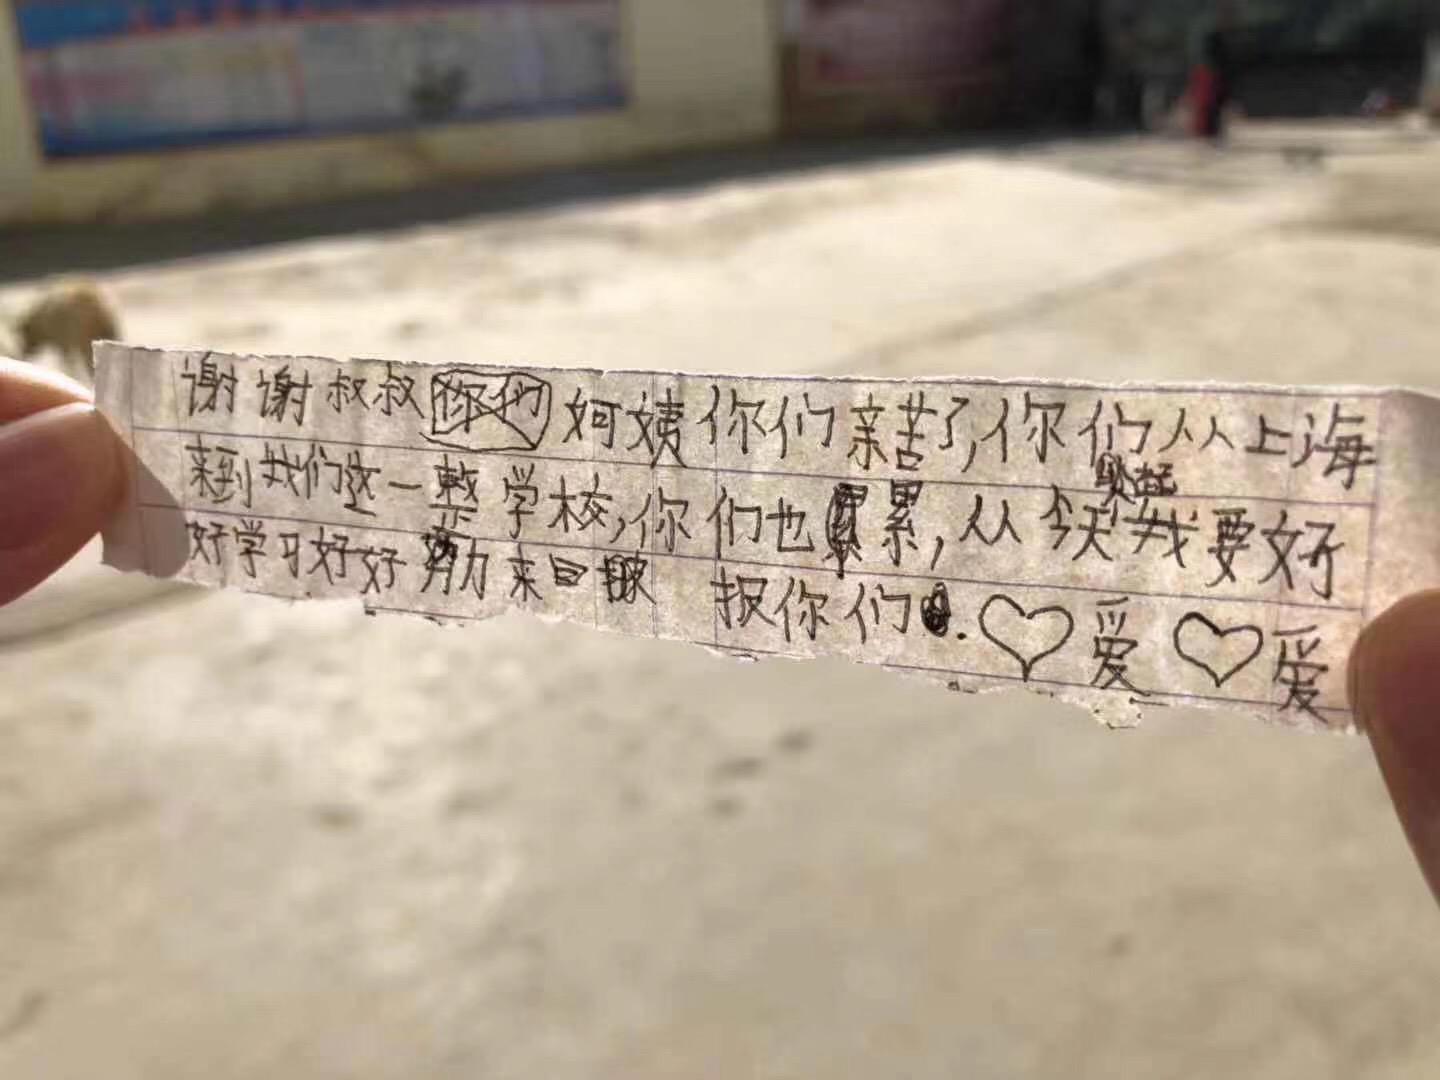 谢谢叔叔婀姨你们亲苦了,你们从上海
来到我们这一整学校,你们也累,从今天起我要好
好学习好好努力来回报你们.♡爱♡爱